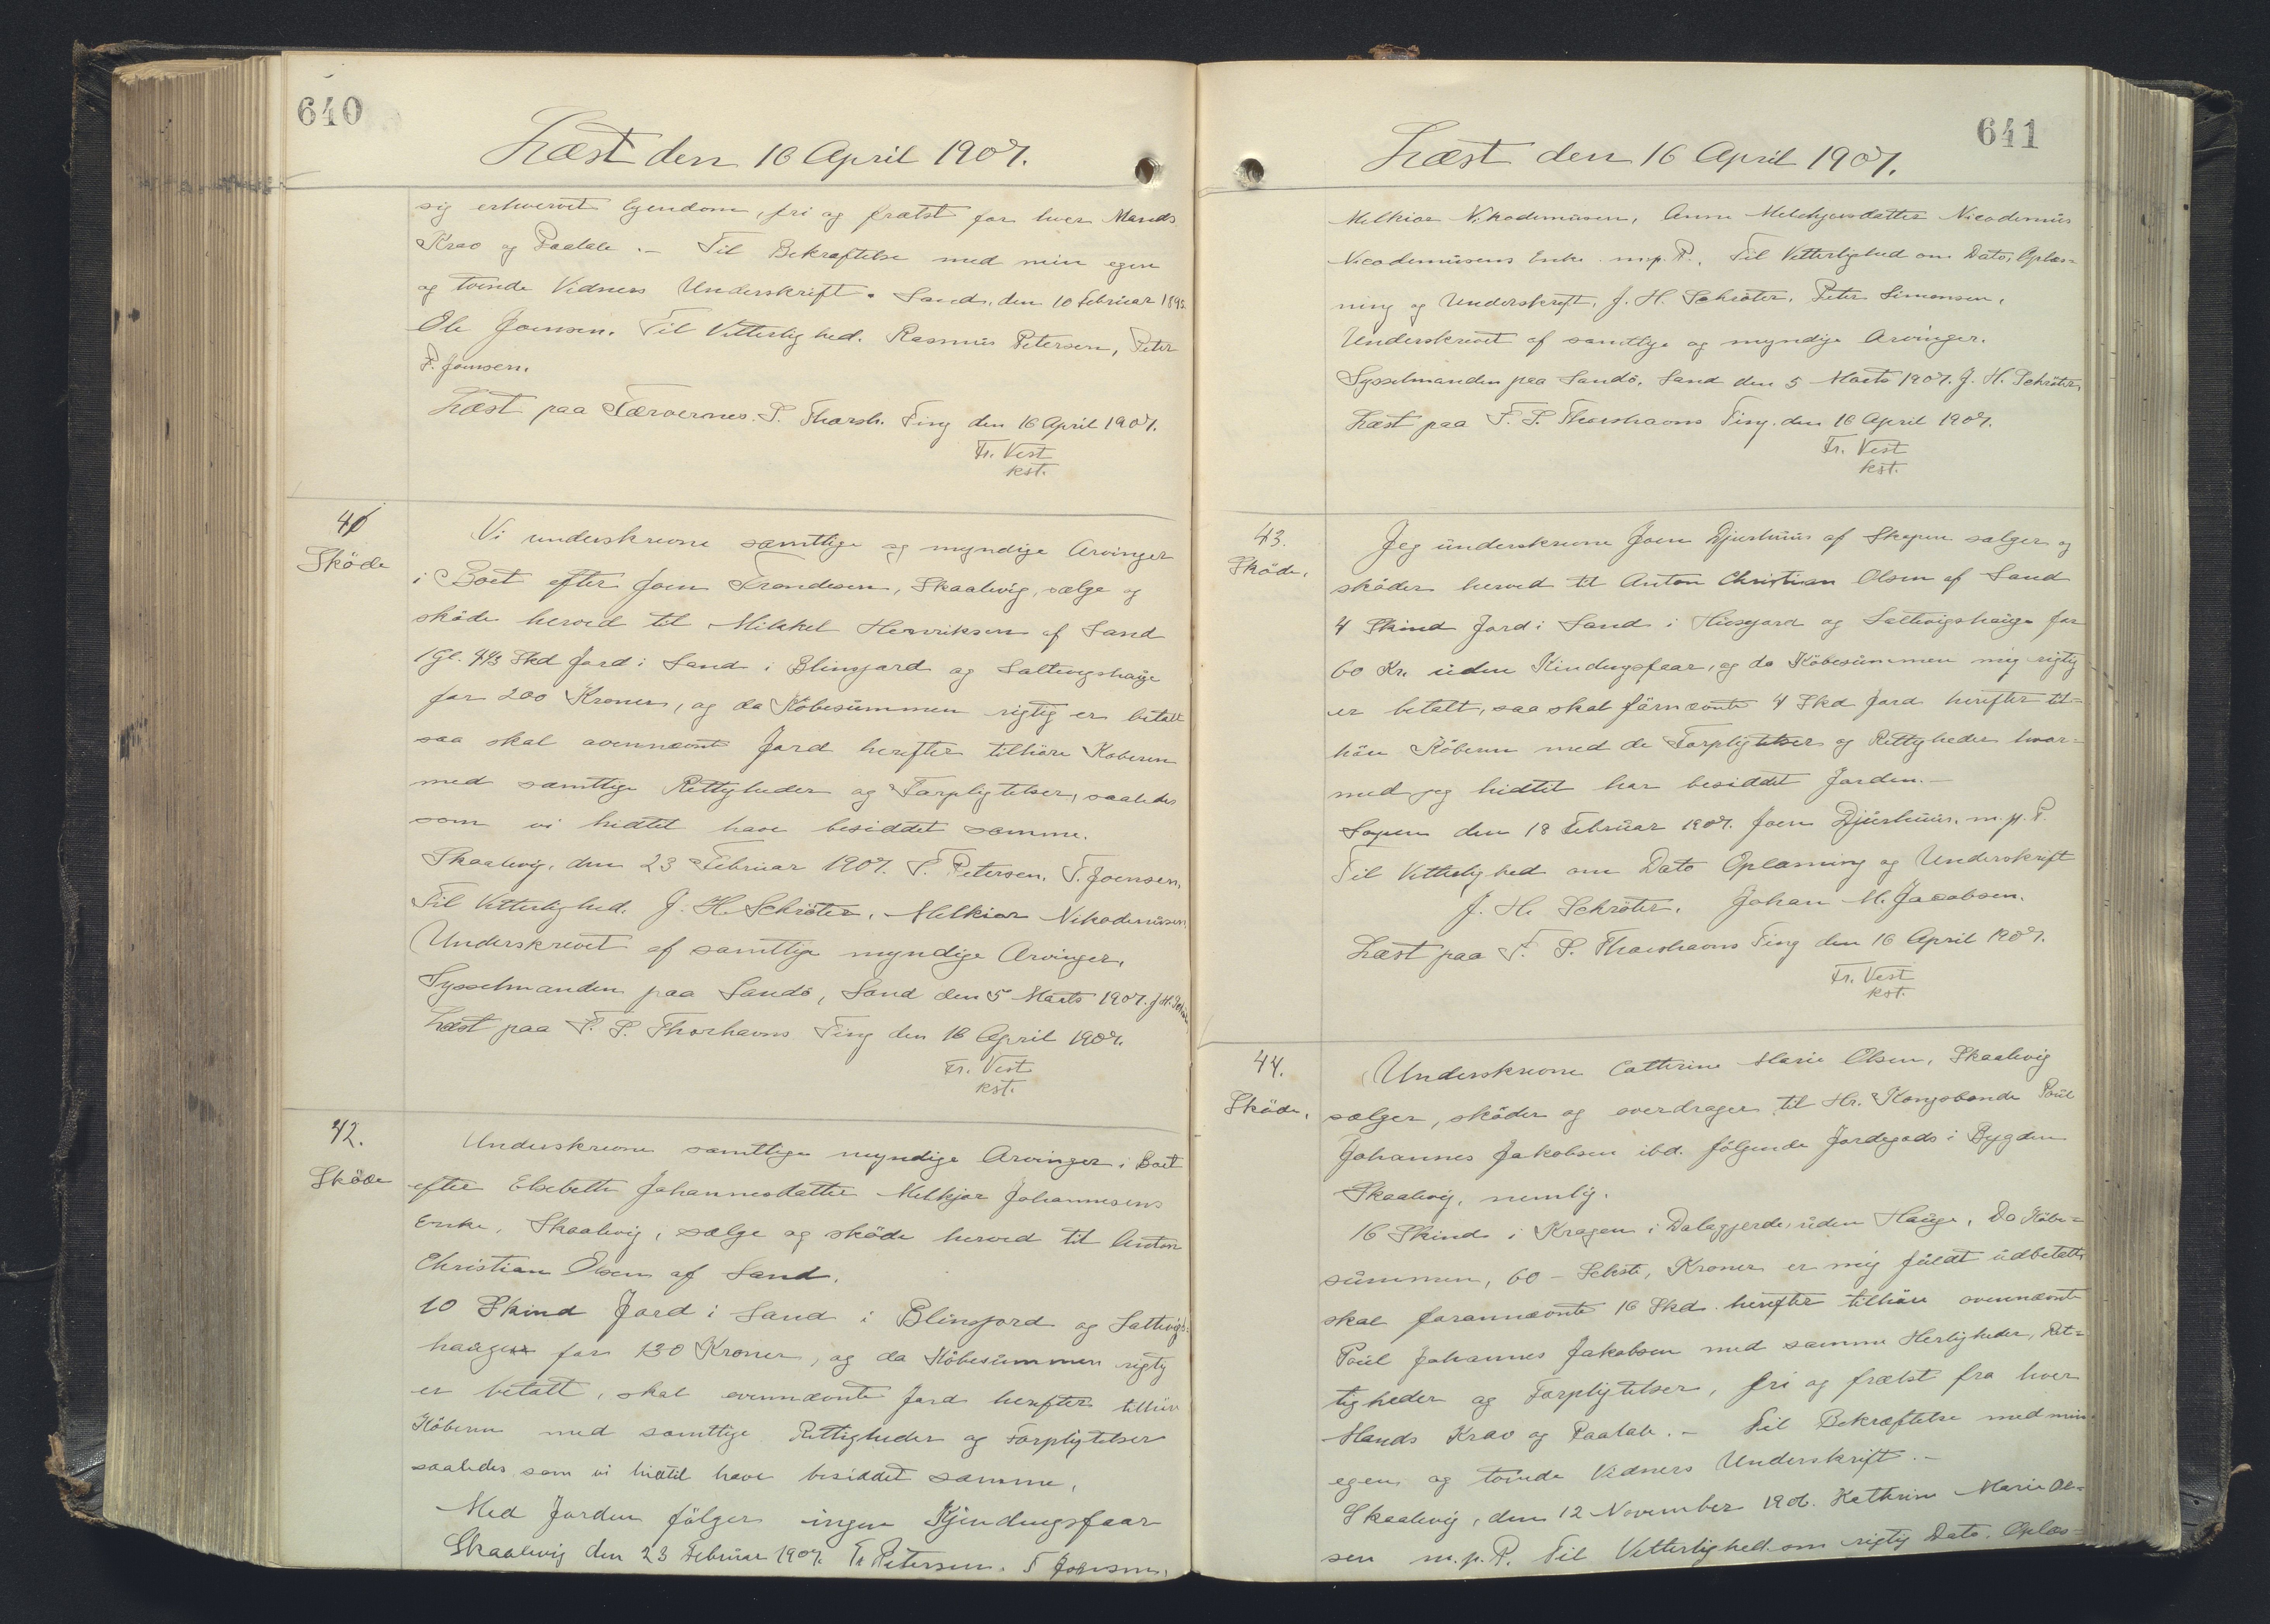 640
Læst den 16 April 1907.
sig erhvervet Ejendom, fri og frælst for hver Mands
Krav og Paatale. – Til Bekræftelse med min egen
og tvende Vidners Underskrift. Sand, den 10 Februar 1892
Ole Joensen. Til Vitterlighed. Rasmus Petersen, Peter
P. Joensen.
Læst paa Færøernes S. Thorsh. Ting den 16 April 1907.
Fr. Vest
kst.
41
Sköde
Vi underskrevne samtlige og myndige Arvinger
i Boet efter Joen Trondesen, Skaalevig, sælge og
sköde herved til Mikkel Henriksen af Sand
1 Gl. 4⅔ Skd Jord i Sand i Blinsjord og Saltvigshauge
for 200 Kroner, og da Köbesummen rigtig er betalt
saa skal ovennævnte Jord herefter tilhöre Köberen
med samtlige Rettigheder og Forpligtelser, saaledes
som vi hidtil have besiddet samme.
Skaalevig, den 23 Februar 1907. P. Petersen. T. Joensen,
Til Vitterlighed. J. H. Schröter. Melkior Nikodemusen.
Underskrevet af samtlige myndige Arvinger,
Sysselmanden paa Sandö, Sand den 5 Marts 1907. J. H. Schröter
Læst paa F. S. Thorhavns Ting den 16 April 1907.
Fr. Vest
kst.
42.
Sköde
Underskrevne samtlige myndige Arvinger i Boet
efter Elsebeth Johannesdatter Melkjor Johannesens
Enke, Skaalevig, sælge og sköde herved til Anton
Christian Olsen af Sand.
10 Skind Jord i Sand i Blinsjord og Saltvigs=
haugen for 130 Kroner, og da Köbesummen rigtig
er betalt, skal ovennævnte Jord herefter tilhöre
Köberen med samtlige Rettigheder og Forpligtelser
saaledes som vi hidtil have besiddet samme.
Med Jorden fölger ingen Kjendingsfaar
Skaalevig den 23 Februar 1907. Petersen. T Joensen.
641
Læst den 16 April 1907.
Melkior Nikodemusen, Anna Melchjorsdatter Nicodemus
Nicodemusens Enke m.p.P. Til Vitterlighed om Dato, Oplæs=
ning og Underskrift, J. H. Schröter. Peter Simonsen.
Underskrevet af samtlige og myndige Arvinger.
Sysselmanden paa Sandö, Sand den 5 Marts 1907. J. H. Schröter
Læst paa F. S. Thorshavns Ting den 16 April 1907.
Fr. Vest
kst.
43.
Sköde.
Jeg underskrevne Joen Djurhuus af Skopun sælger og
sköder herved til Anton Christian Olsen af Sand
4 Skind Jord i Sand i Husgard og Saltvigshauge for
60 Kr. uden Kindingsfaar, og da Köbesummen mig rigtig
er betalt, saa skal förnævnte 4 Skd Jord herefter til=
höre Köberen med de Forpligtelser og Rettigheder hvor=
med jeg hidtil har besiddet Jorden.–
Sopun den 18 Februar 1907. Joen Djurhuus. m.p.P.
Til Vitterlighed om Dato Oplæsning og Underskrift
J. H. Schröter. Johan M. Jacobsen.
Læst paa F. S. Thorshavns Ting den 16 April 1907.
Fr. Vest
kst.
44.
Sköde.
Underskrevne Catterine Marie Olsen, Skaalevig
sælger, sköder og overdrager til Hr. Kongsbonde Poul
Johannes Jakobsen ibd. fölgende Jordegods i Bygden
Skaalevig, nemlig.
16 Skind i Kragen i Dalagjerde, uden Hauge. Da Köbe=
summen, 60 – Seksti, Kroner er mig fuldt udbetalt
skal forannævnte 16 Skd. herefter tilhöre ovennævnte
Poul Johannes Jakobsen med samme Herligheder, Ret=
tigheder og Forpligtelser, fri og frælst fra hver
Mands Krav og Paatale. – Til Bekræftelse med min
egen og tvende Vidners Underskrift. –
Skaalevig, den 12 November 1906. Kathrine Marie Ol=
sen m.p.P. Til Vitterlighed om rigtig Dato. Oplæs=